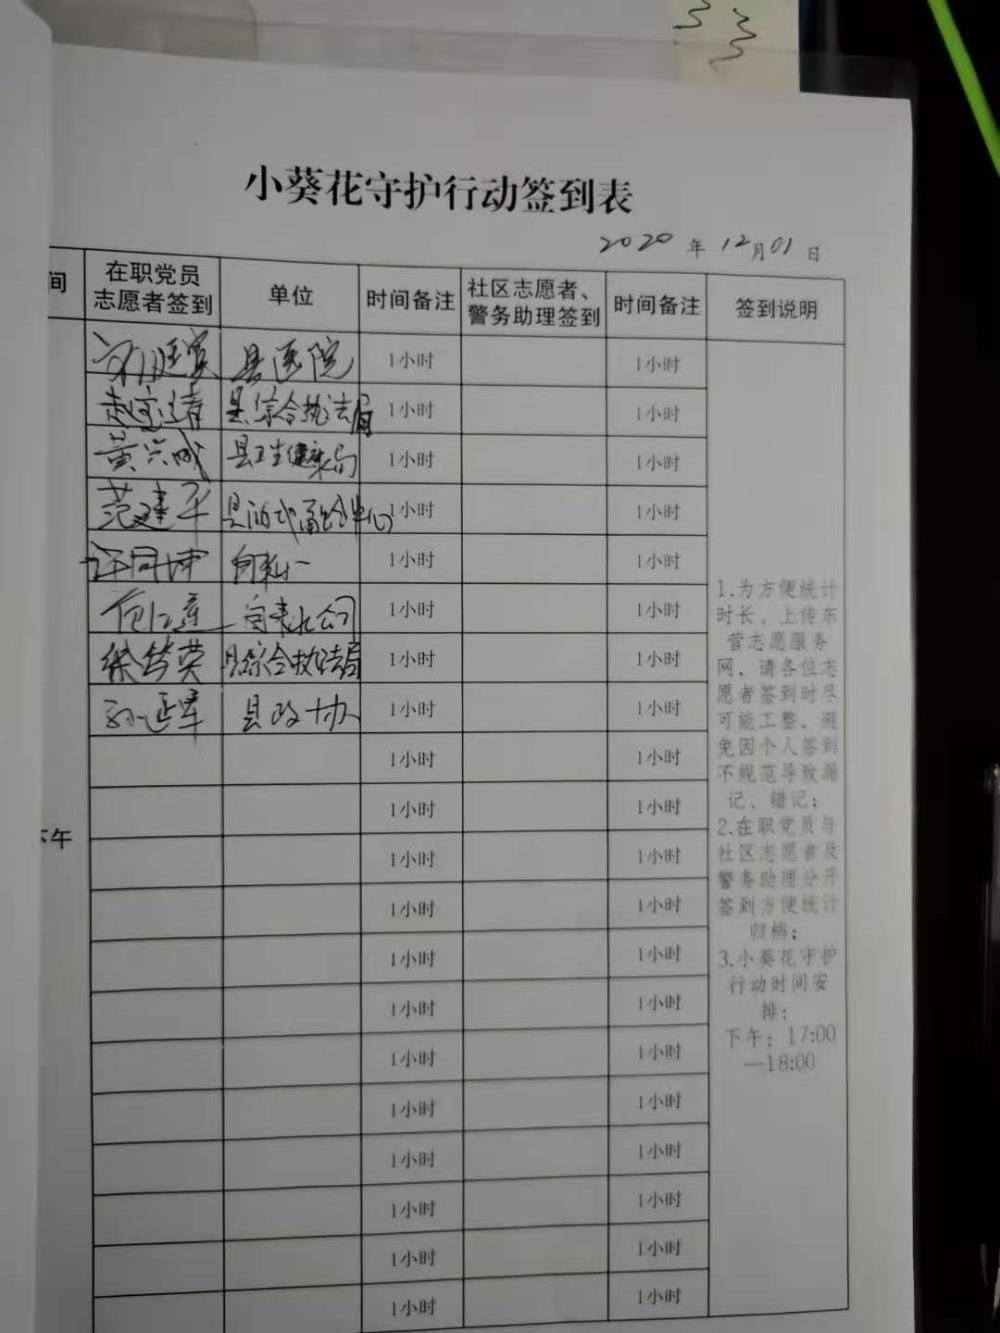 小葵花守护行动签到表
2020 年 12月01日
间
在职党员
志愿者签到
单位
时间备注
社区志愿者、
警务助理签到
时间备注
签到说明
县医院 1小时 1小时
赵宝清 县综合执法局 1小时 1小时
黄兴成 县卫生健康局 1小时 1小时
范建平 1小时 1小时
许同坤 1小时 1小时
自来水公司 1小时 1小时
县综合执法局 1小时 1小时
孙延军 县政协 1小时 1小时
1小时 1小时
1小时 1小时
下午
1小时 1小时
1小时 1小时
1小时 1小时
1小时 1小时
1小时 1小时
1小时 1小时
1小时 1小时
1小时 1小时
1小时 1小时
1小时 1小时
1.为方便统计
时长、上传东
营志愿服务
网，请各位志
愿者签到时尽
可能工整，避
免因个人签到
不规范导致漏
记、错记；
2.在职党员与
社区志愿者及
警务助理分开
签到方便统计
归档；
3.小葵花守护
行动时间安
排：
下午：17:00
—18:00